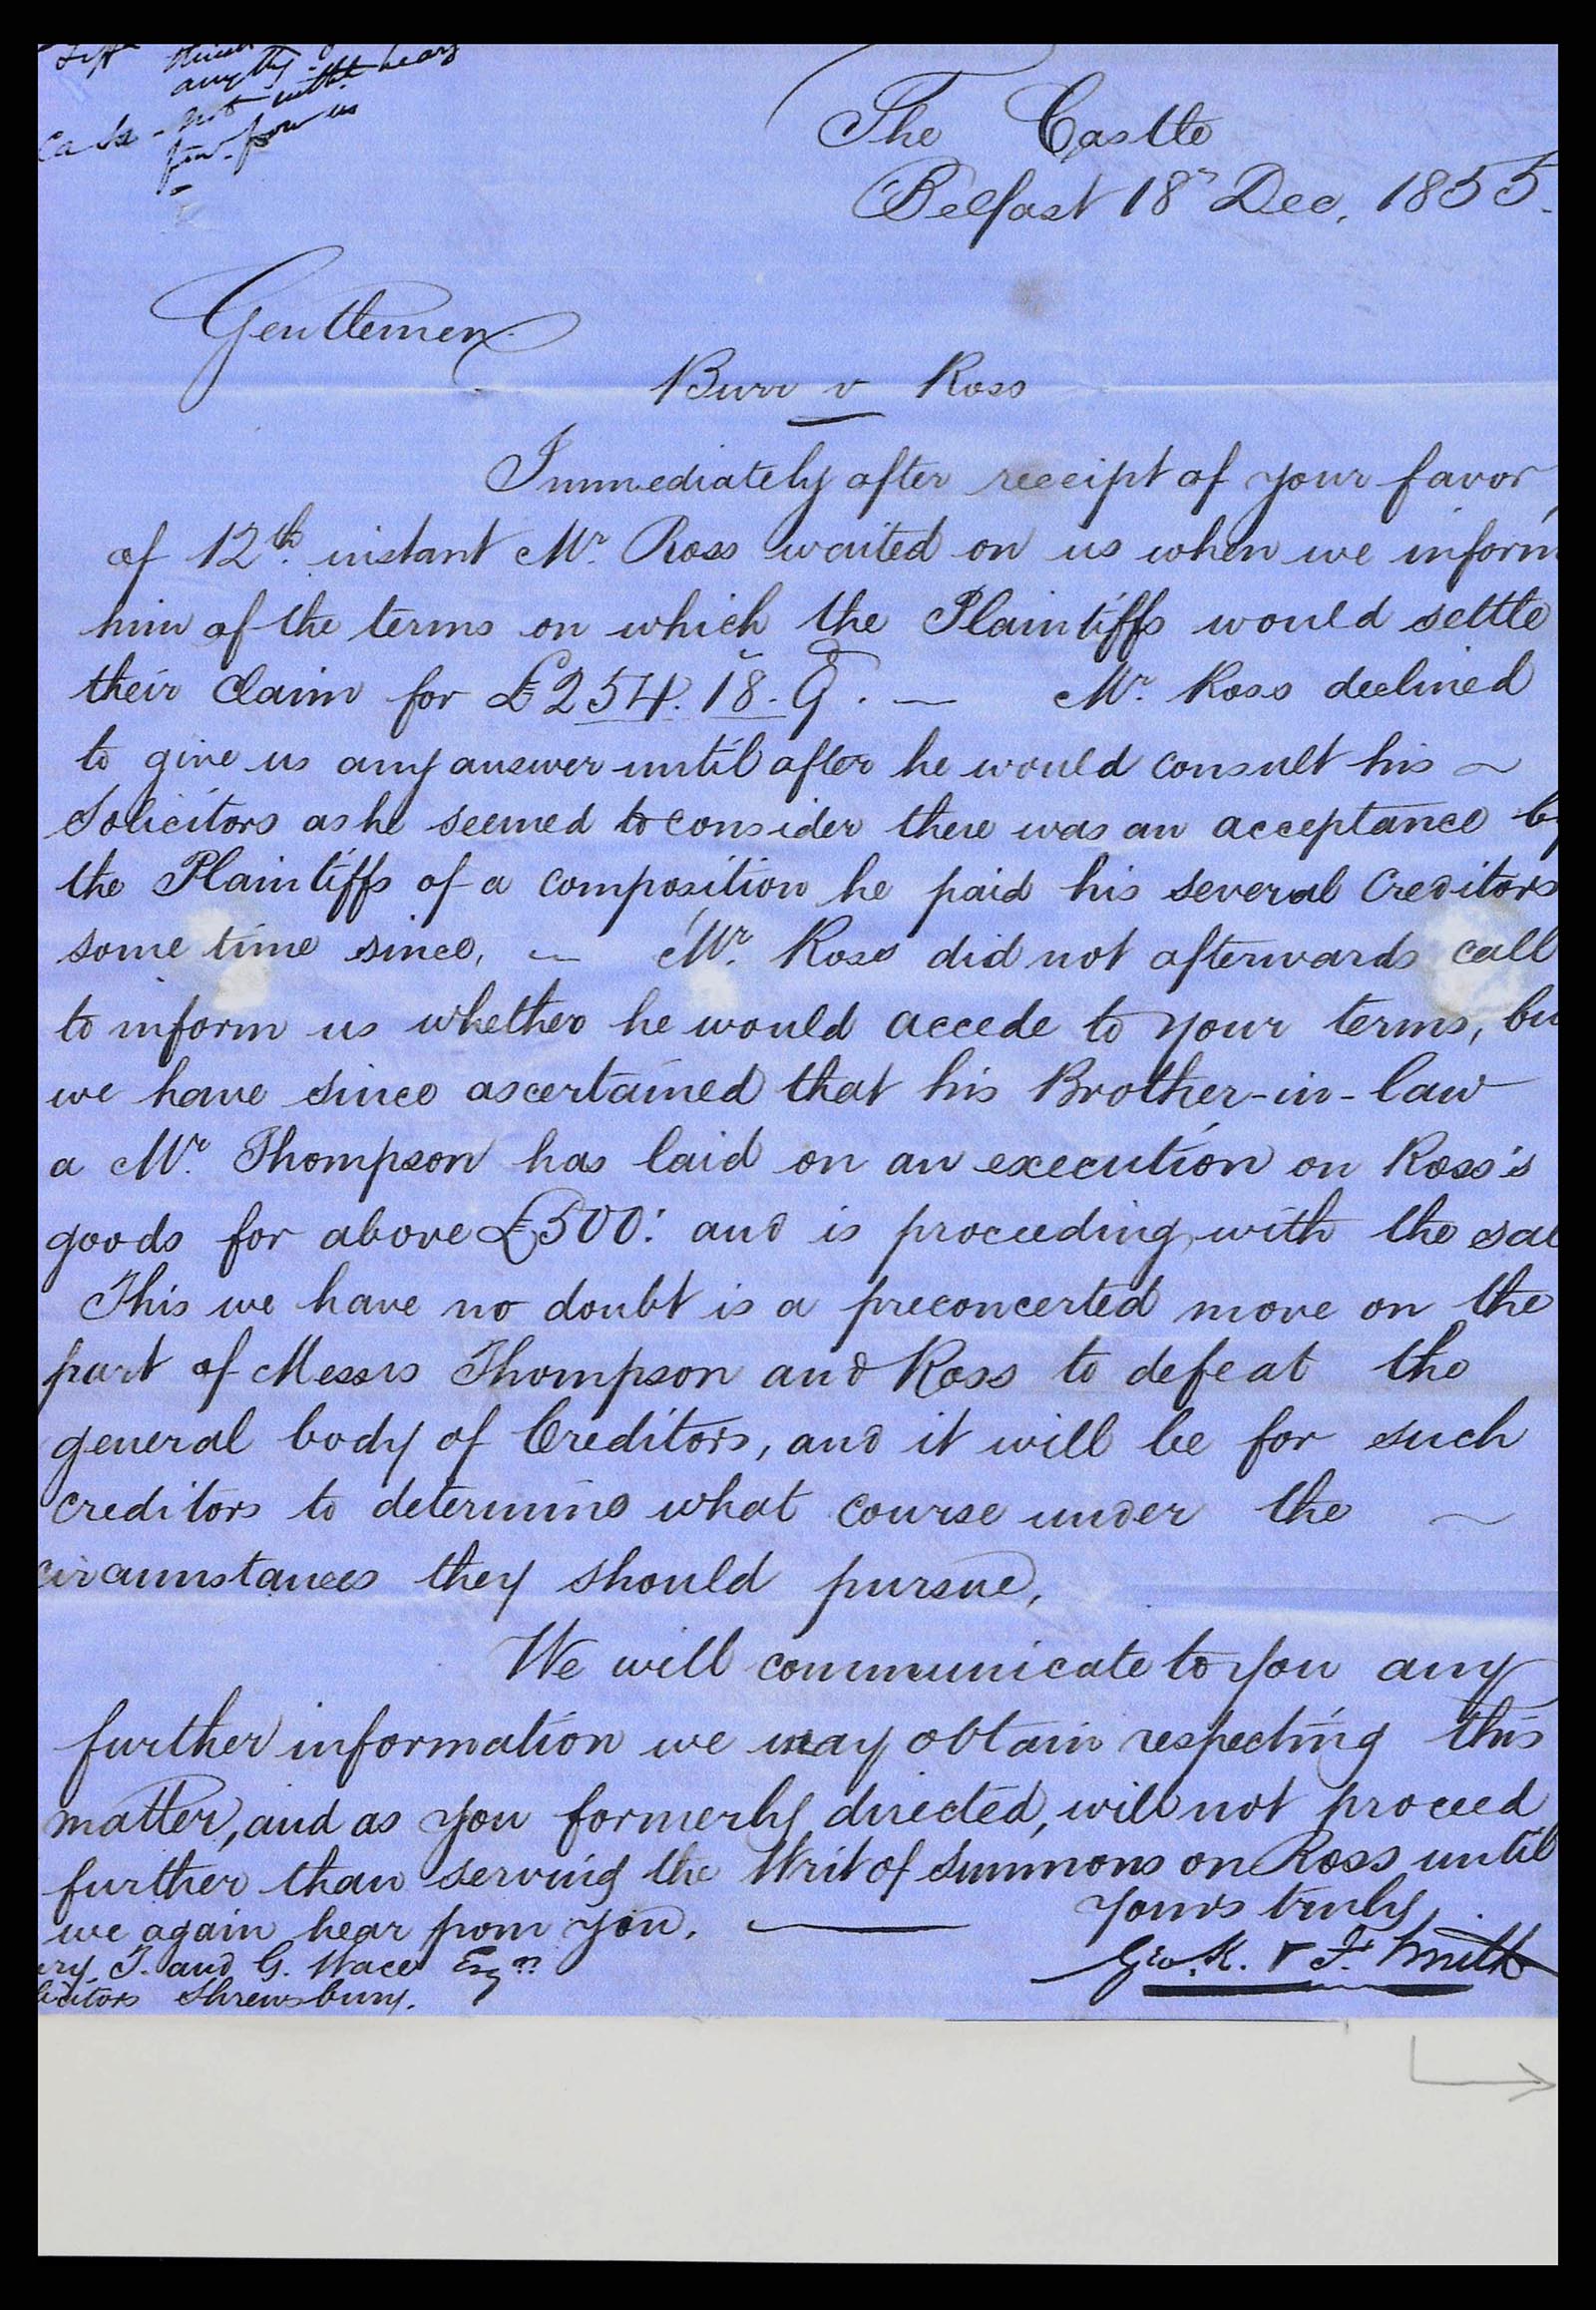 any thg
Ca Se - not until hears
from us
The Castle
Belfast 18th Dec. 1855.
Gentlemen
Burr v Ross
Immediately after receipt of your favor
of 12th. instant Mr. Ross waited on us when we inform
him of the terms on which the Plaintiffs would settle
their claim for £254. 18. 9. — Mr. Ross declined
to give us any answer until after he would consult his ~
Solicitors as he seemed to consider there was an acceptance by
the Plaintiffs of a composition he paid his several Creditors
some time since, — Mr. Ross did not afterwards call
to inform us whether he would accede to your terms, bu
we have since ascertained that his Brother-in-law
a Mr. Thompson has laid on an execution on Ross's
goods for above £500: and is proceeding with the sal
This we have no doubt is a preconcerted move on the
part of Messrs Thompson and Ross to defeat the
general body of Creditors, and it will be for such
creditors to determine what course under the ~
circumstances they should pursue,
We will communicate to you any
further information we may obtain respecting this
matter, and as you formerly directed, will not proceed
further than serving the Writ of Summons on Ross until
we again hear from you. —
Yours truly,
Geo. K. & F. Smith
ry. T. and G. Wace Esqrs
licitors Shrewsbury.